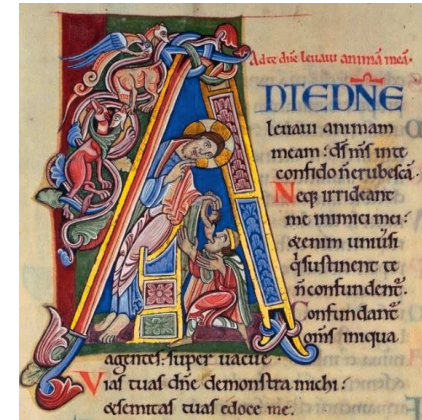 Ad te dn̄e leuaui animā meā.
AD TE DN̄E
leuaui animam
meam: ds̄ ms̄ in te
confido n̄ erubescā.
Neq; irrideant
me inimici mei:
&enim uniūsi
q̄ sustinent te
n̄ confundent̄.
Confundant̄
om̄s iniqua
agentes: super uacue.
Vias tuas dn̄e demonstra michi:
& semitas tuas edoce me.